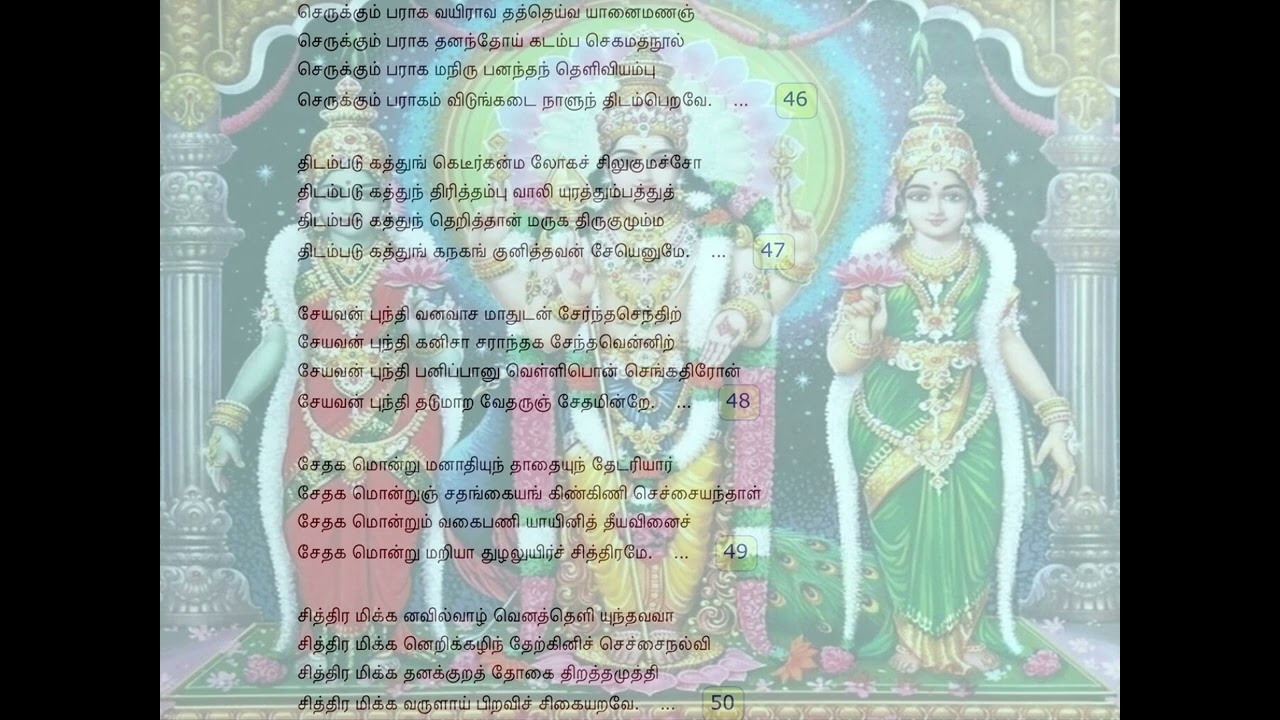 செருக்கும் பராக வயிராவ தத்தெய்வ யானைமணஞ்
செருக்கும் பராக தனந்தோய் கடம்ப செகமதநூல்
செருக்கும் பராக மநிரு பனந்தந் தெளிவியம்பு
செருக்கும் பராகம் விடுங்கடை நாளுந் திடம்பெறவே. ... 46
திடம்படு கத்துங் கெடீர்கன்ம லோகச் சிலுகுமச்சோ
திடம்படு கத்துந் திரித்தம்பு வாலி யுரத்தும்பத்துத்
திடம்படு கத்துந் தெறித்தான் மருக திருகுமும்ம
திடம்படு கத்துங் கநகங் குனித்தவன் சேயெனுமே. ... 47
சேயவன் புந்தி வனவாச மாதுடன் சேர்ந்தசெந்திற்
சேயவன் புந்தி கனிசா சராந்தக சேந்தவென்னிற்
சேயவன் புந்தி பனிப்பானு வெள்ளிபொன் செங்கதிரோன்
சேயவன் புந்தி தடுமாற வேதருஞ் சேதமின்றே. ... 48
சேதக மொன்று மனாதியுந் தாதையுந் தேடரியார்
சேதக மொன்றுஞ் சதங்கையங் கிண்கிணி செச்சையந்தாள்
சேதக மொன்றும் வகைபணி யாயினித் தீயவினைச்
சேதக மொன்று மறியா துழலுயிர்ச் சித்திரமே. ... 49
சித்திர மிக்க னவில்வாழ் வெனத்தெளி யுந்தவவா
சித்திர மிக்க னெறிக்கழிந் தேற்கினிச் செச்சைநல்வி
சித்திர மிக்க தனக்குறத் தோகை திறத்தமுத்தி
சித்திர மிக்க வருளாய் பிறவிச் சிகையறவே. ... 50